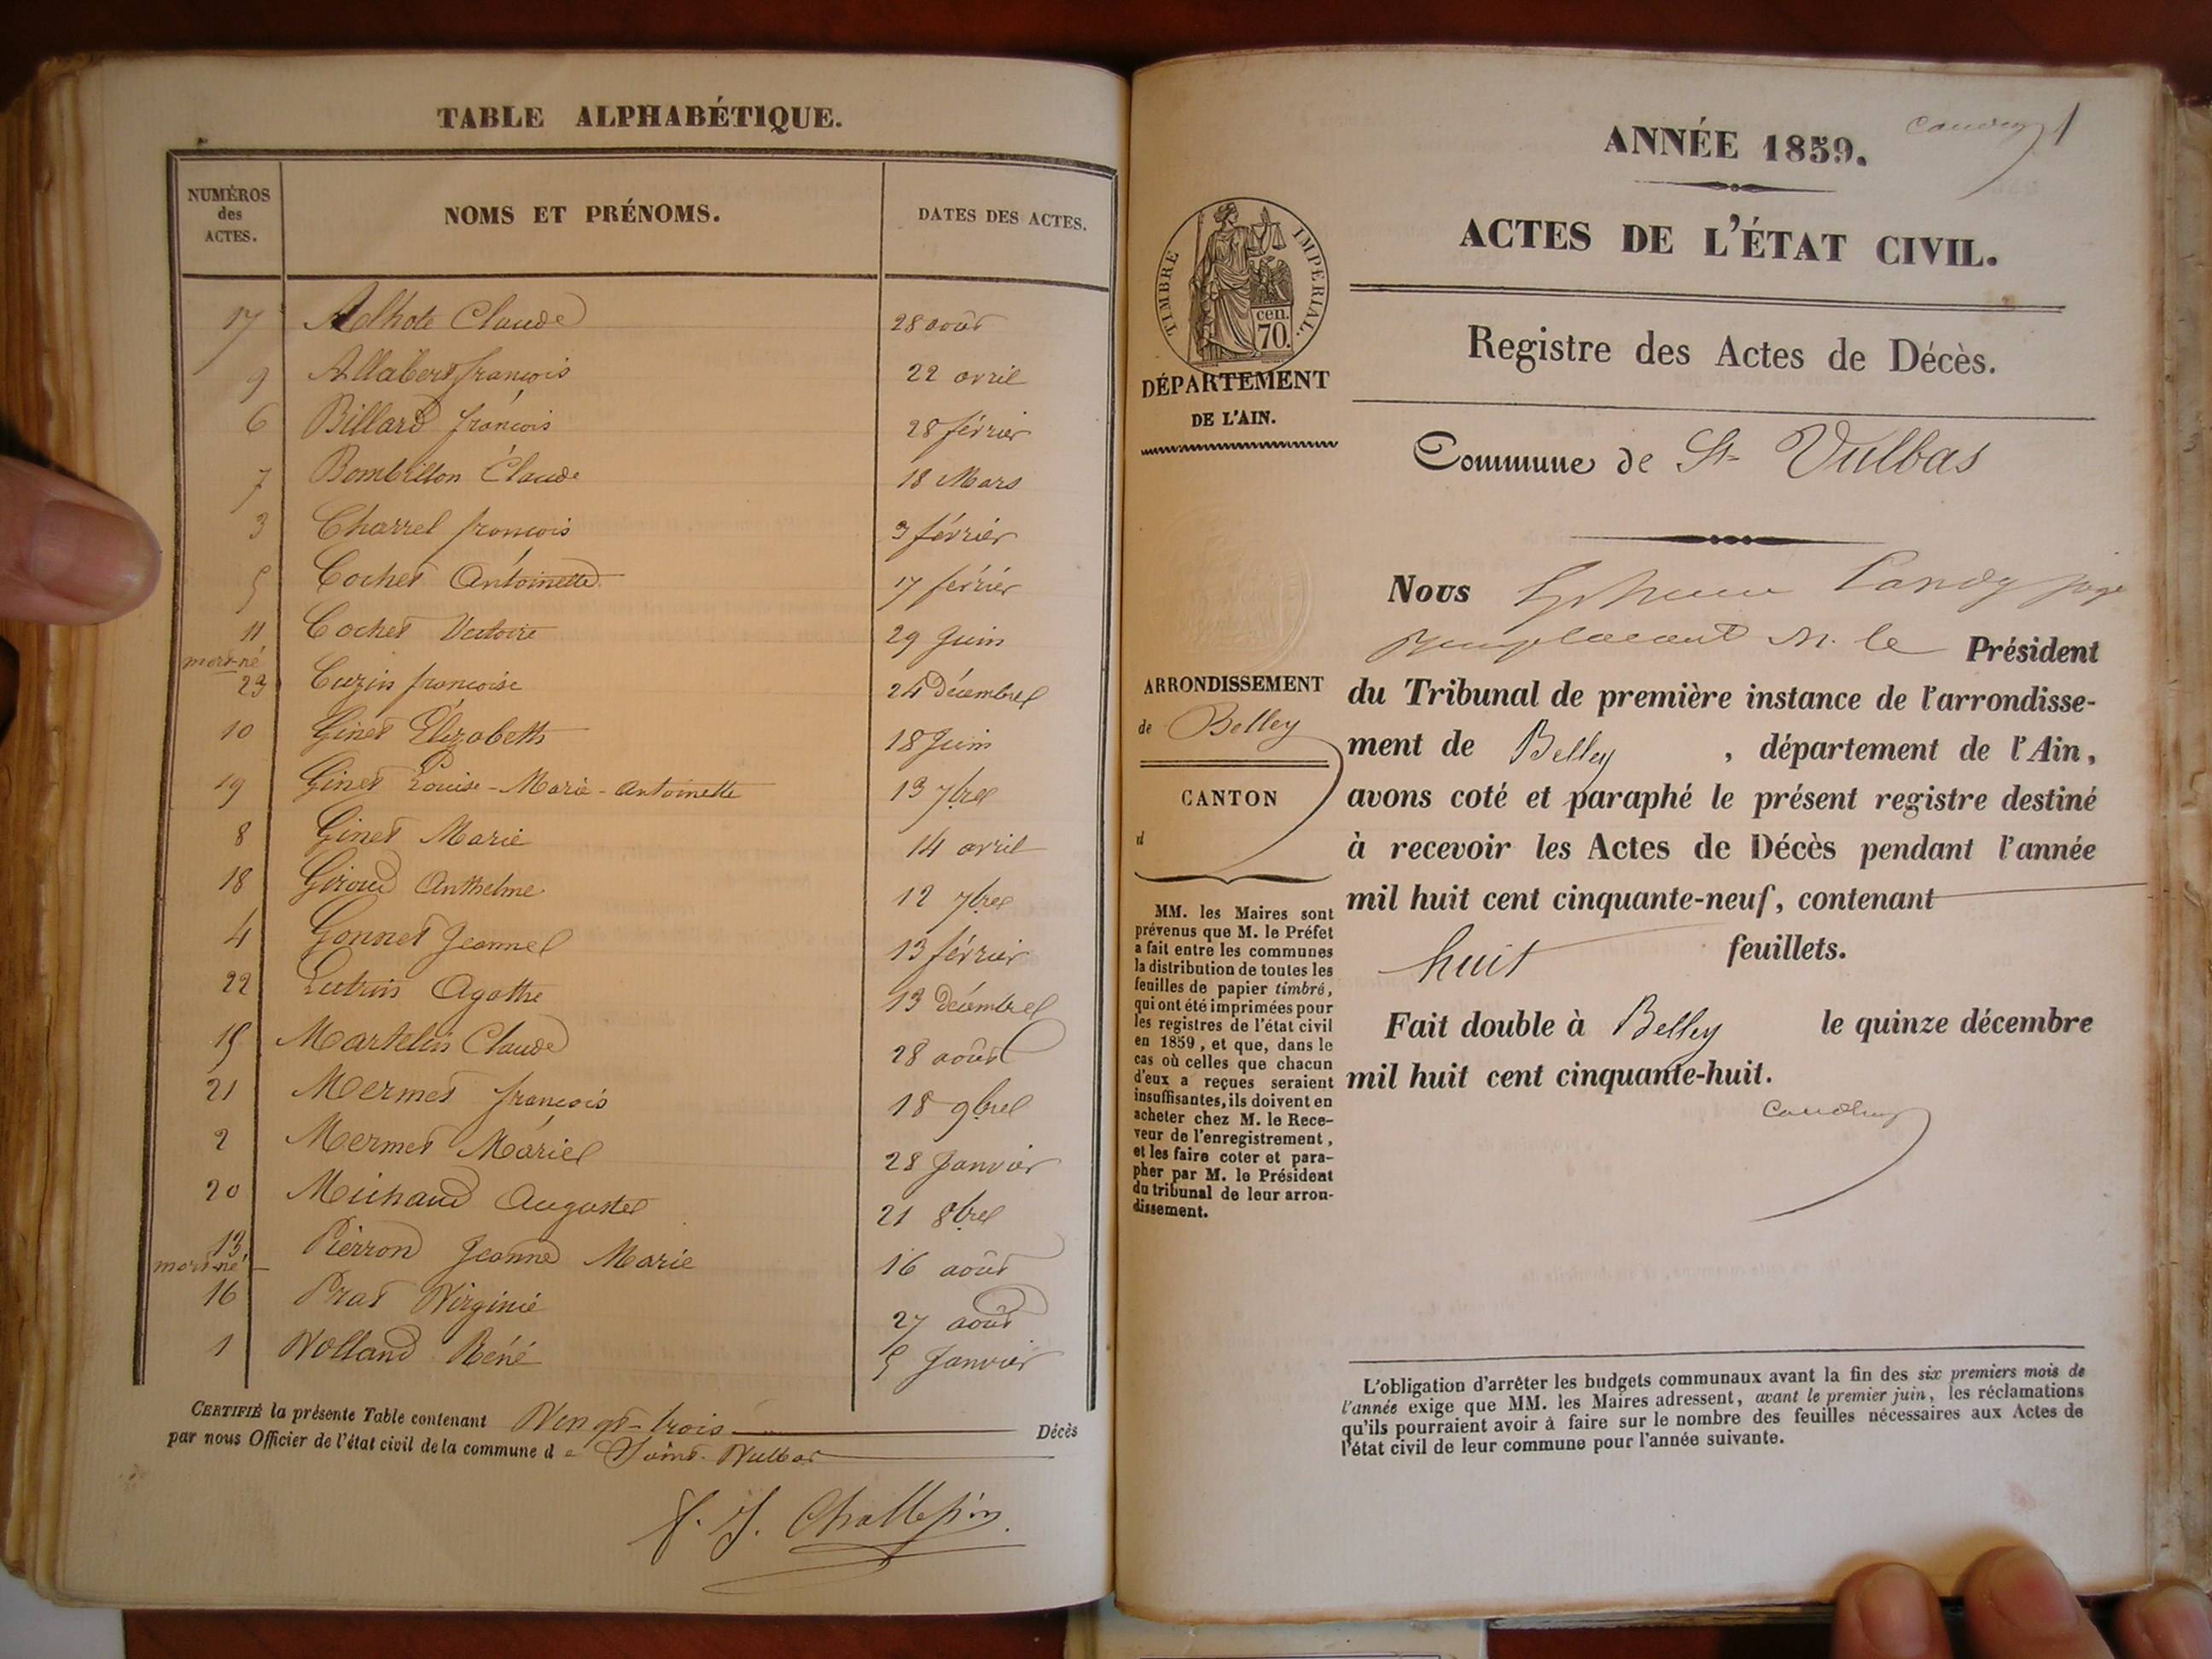 TABLE ALPHABÉTIQUE.
NUMÉROS
des
ACTES.
NOMS ET PRÉNOMS.
DATES DES ACTES.
17 Adhote Claude 28 août
9 Allabert françois 22 avril
6 Billard françois 28 février
7 Bombrillon Claude 18 Mars
3 Charrel françois 3 février
5 Cochet Antoinette 17 février
11 Cochet Victoire 29 Juin
mort-né
23 Cuzin françoise 24 décembre
10 Ginet Élizabeth 18 Juin
19 Ginet Louise-Marie-antoinette 13 7bre
8 Ginet Marie 14 avril
18 Giroud Anthelme 12 7bre
4 Gonnet Jeanne 13 février
22 Agathe 13 décembre
15 Martelin Claude 28 août
21 Mermet françois 18 9bre
2 Mermet Marie 28 Janvier
20 Michaud Auguste 21 8bre
13 Pierron Jeanne Marie 16 août
mort-né
16 Prat Virginie 27 août
1 Volland Réné 5 Janvier
CERTIFIÉ la présente Table contenant Vingt-trois Décès
par nous Officier de l'état civil de la commune de Saint-Vulbas
ANNÉE 1859.
1
ACTES DE L'ÉTAT CIVIL.
TIMBRE IMPÉRIAL.
cen.
70.
Registre des Actes de Décès.
DÉPARTEMENT
DE L'AIN.
Commune de St Vulbas
Nous juge
remplaçant M. le Président
ARRONDISSEMENT
de Belley
CANTON
d
du Tribunal de première instance de l'arrondisse-
ment de Belley, département de l'Ain,
avons coté et paraphé le présent registre destiné
à recevoir les Actes de Décès pendant l'année
mil huit cent cinquante-neuf, contenant
huit feuillets.
Fait double à Belley le quinze décembre
mil huit cent cinquante-huit.
MM. les Maires sont
prévenus que M. le Préfet
a fait entre les communes
la distribution de toutes les
feuilles de papier timbré,
qui ont été imprimées pour
les registres de l'état civil
en 1859, et que, dans le
cas où celles que chacun
d'eux a reçues seraient
insuffisantes, ils doivent en
acheter chez M. le Rece-
veur de l'enregistrement,
et les faire coter et para-
pher par M. le Président
du tribunal de leur arron-
dissement.
L'obligation d'arrêter les budgets communaux avant la fin des six premiers mois de
l'année exige que MM. les Maires adressent, avant le premier juin, les réclamations
qu'ils pourraient avoir à faire sur le nombre des feuilles nécessaires aux Actes de
l'état civil de leur commune pour l'année suivante.